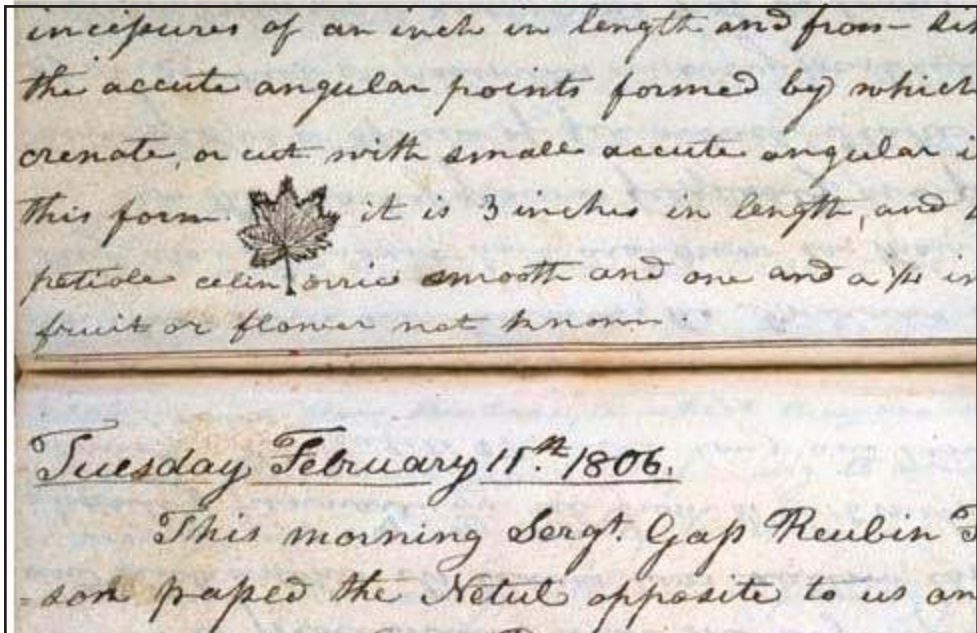 incissures of an inch in length and from
the accute angular points formed by which
crenate, or cut with small accute angular
this form. it is 3 inches in length, and
petiole celindric smooth and one and a 1/4 in
fruit or flower not known.
Tuesday February 11th. 1806.
This morning Sergt. Gass Reubin
son passed the Netul opposite to us an